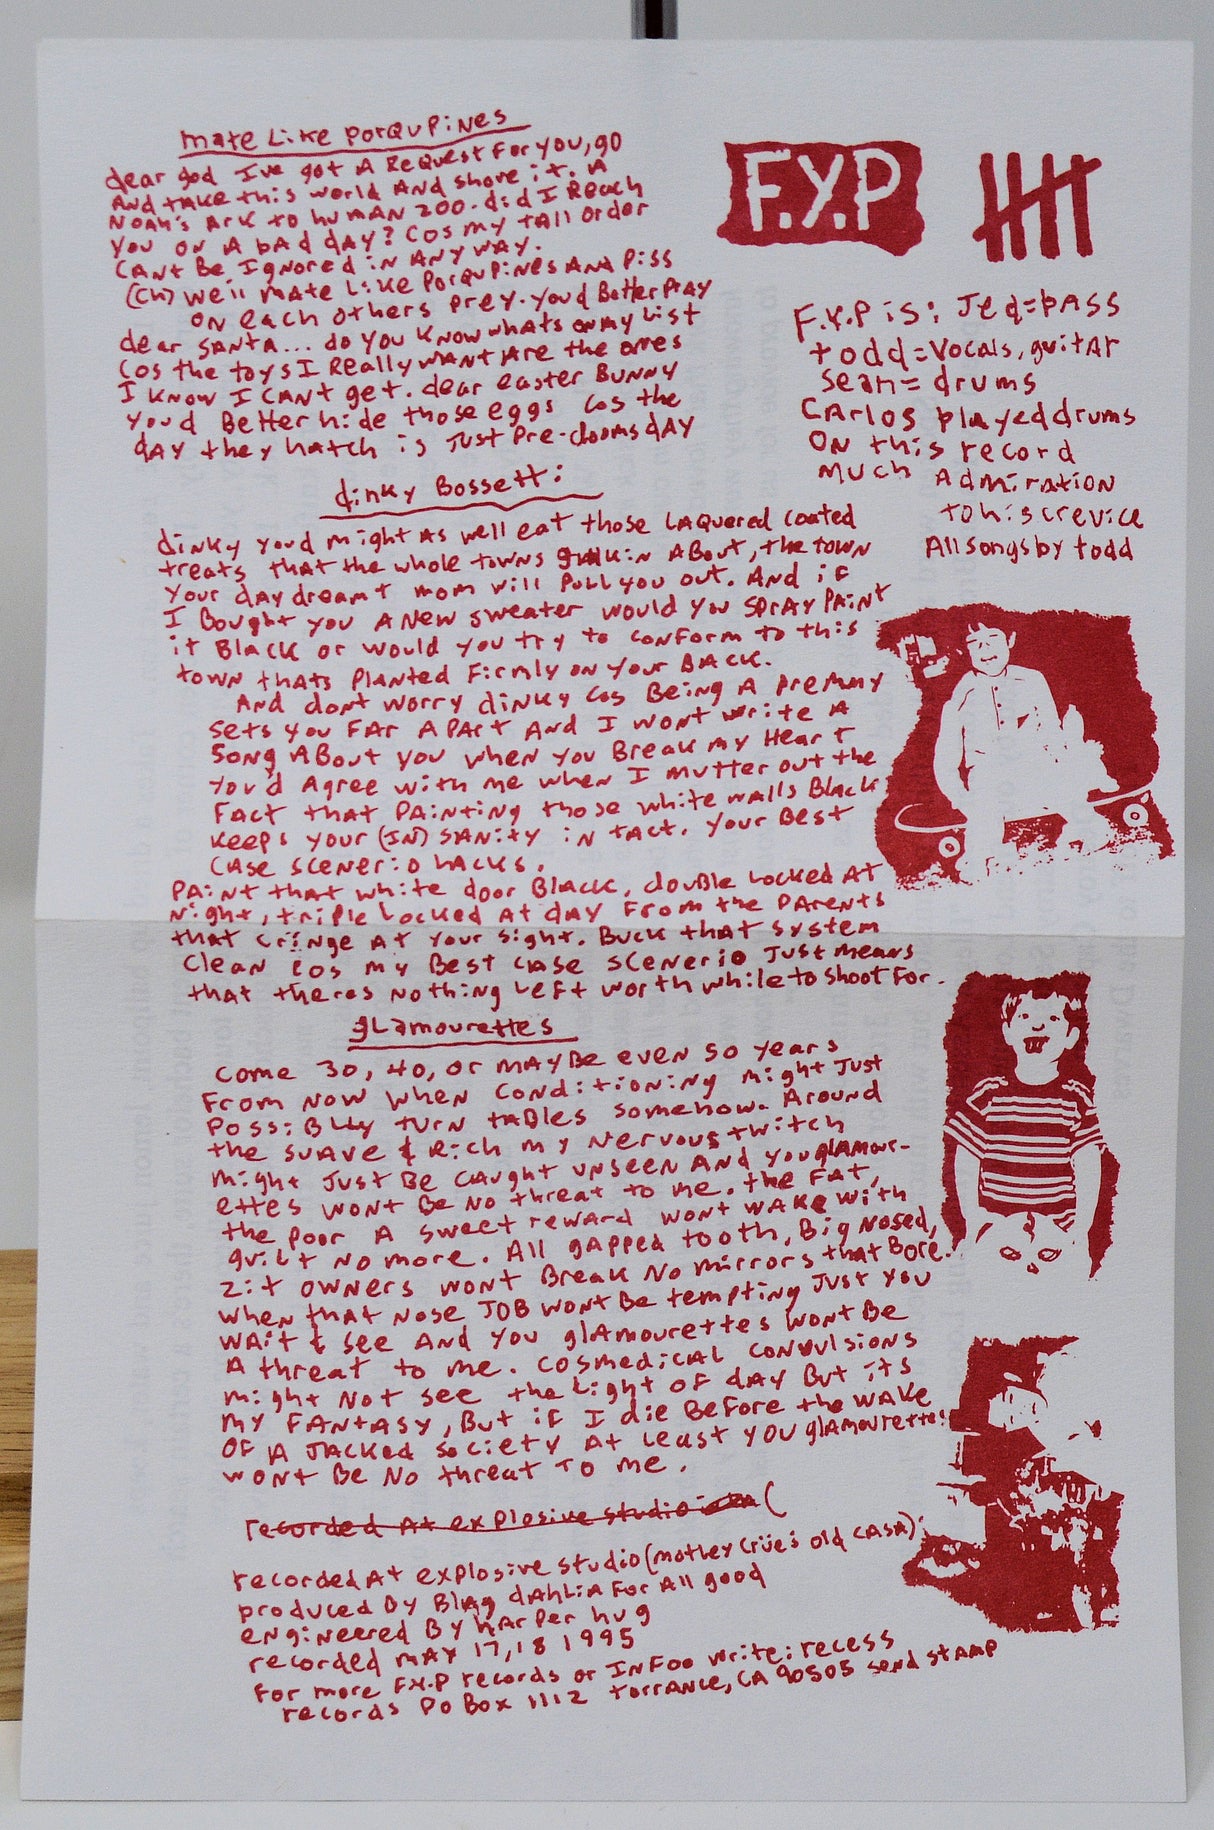 mate Like PorQuPiNes
dear god I've got A Request For you, go
And tAke this world And shove it. A
NoAh's Ark to humAN 200. did I Reach
you on A bad day? Cos my tall order
CANt Be Ignored iN ANY WAY.
(Ch) we'll mate Like PorQuPiNes And Piss
oN each others Prey. You'd Better Pray
dear SANTA... do You KNow whats oN my List
Cos the toys I ReallY WANt Are the ones
I KNow I CAN't get. dear easter BUNNY
you'd Better hide those eggs Cos the
day they hatch is Just Pre-doomsday
dinky Bossett:
dinky you'd might As well eat those LAQuered coated
treats that the whole towns
About, the town
Your day dreamt mom will Pull you out. And if
I Bought you A New sweater would you sprAy PAiNt
it BlAck or would you try to conform to this
town thats PlAnted FirmLy oN Your BAck.
And dont worry dinky Cos Being A Premmy
sets you FAr APArt And I wont write A
Song ABout you when you BreAk my HeArt
You'd Agree with me when I mutter out the
FAct that PAiNtiNg those white walls BlAck
keeps your (IN) SANity iN tAct. Your Best
CAse sceNerio hAcks.
PAiNt that white door BlAck, double Locked At
Night, triPle Locked At dAy From the PAreNts
that criNge At Your sight. Buck that system
CleAN Cos my Best CAse sceNerio Just meAns
that theres Nothing Left worth while to shoot For.
gLamourettes
Come 30, 40, or MAYBE eveN 50 YeArs
From Now wheN CoNditioNiNg might Just
PossiBLy turN tABLes somehow. ArouNd
the suAve & Rich my Nervous twitch
might Just Be CAught uNseeN ANd you glAmour-
ettes woNt Be No threAt to me. the FAt,
the Poor A sweet rewArd woNt wAKe with
guilt No more. All gAPPed tooth, Big Nosed,
zit owNers woNt BreAK No mirrors thAt Bore.
wheN thAt Nose JOB woNt Be temptiNg Just You
WAit & see ANd You glAmourettes WoNt Be
A threAt to me. CosmedicAL CoNvulsioNs
might Not see the Light OF dAy But its
my FANtAsy, But if I die BeFore the WAKe
OF A JACKed society At LeAst You glAmourettes
woNt Be No threAt TO me.
recorded At explosive studio (
recorded At explosive studio (motley Crüe's old CASA);
produced By BlAg dAhLiA For All good
eNgiNeered By hArPer hug
recorded mAy 17, 18 1995
For more F.Y.P records or INFoo write: recess
records Po Box 1112 torrance, CA 90505 send stAmp
F.Y.P
F.Y.P is: Jed=bASS
todd=vocals, guitAr
seAn= drums
CArlos played drums
ON this record
much Admiration
to his crevice
All songs by todd